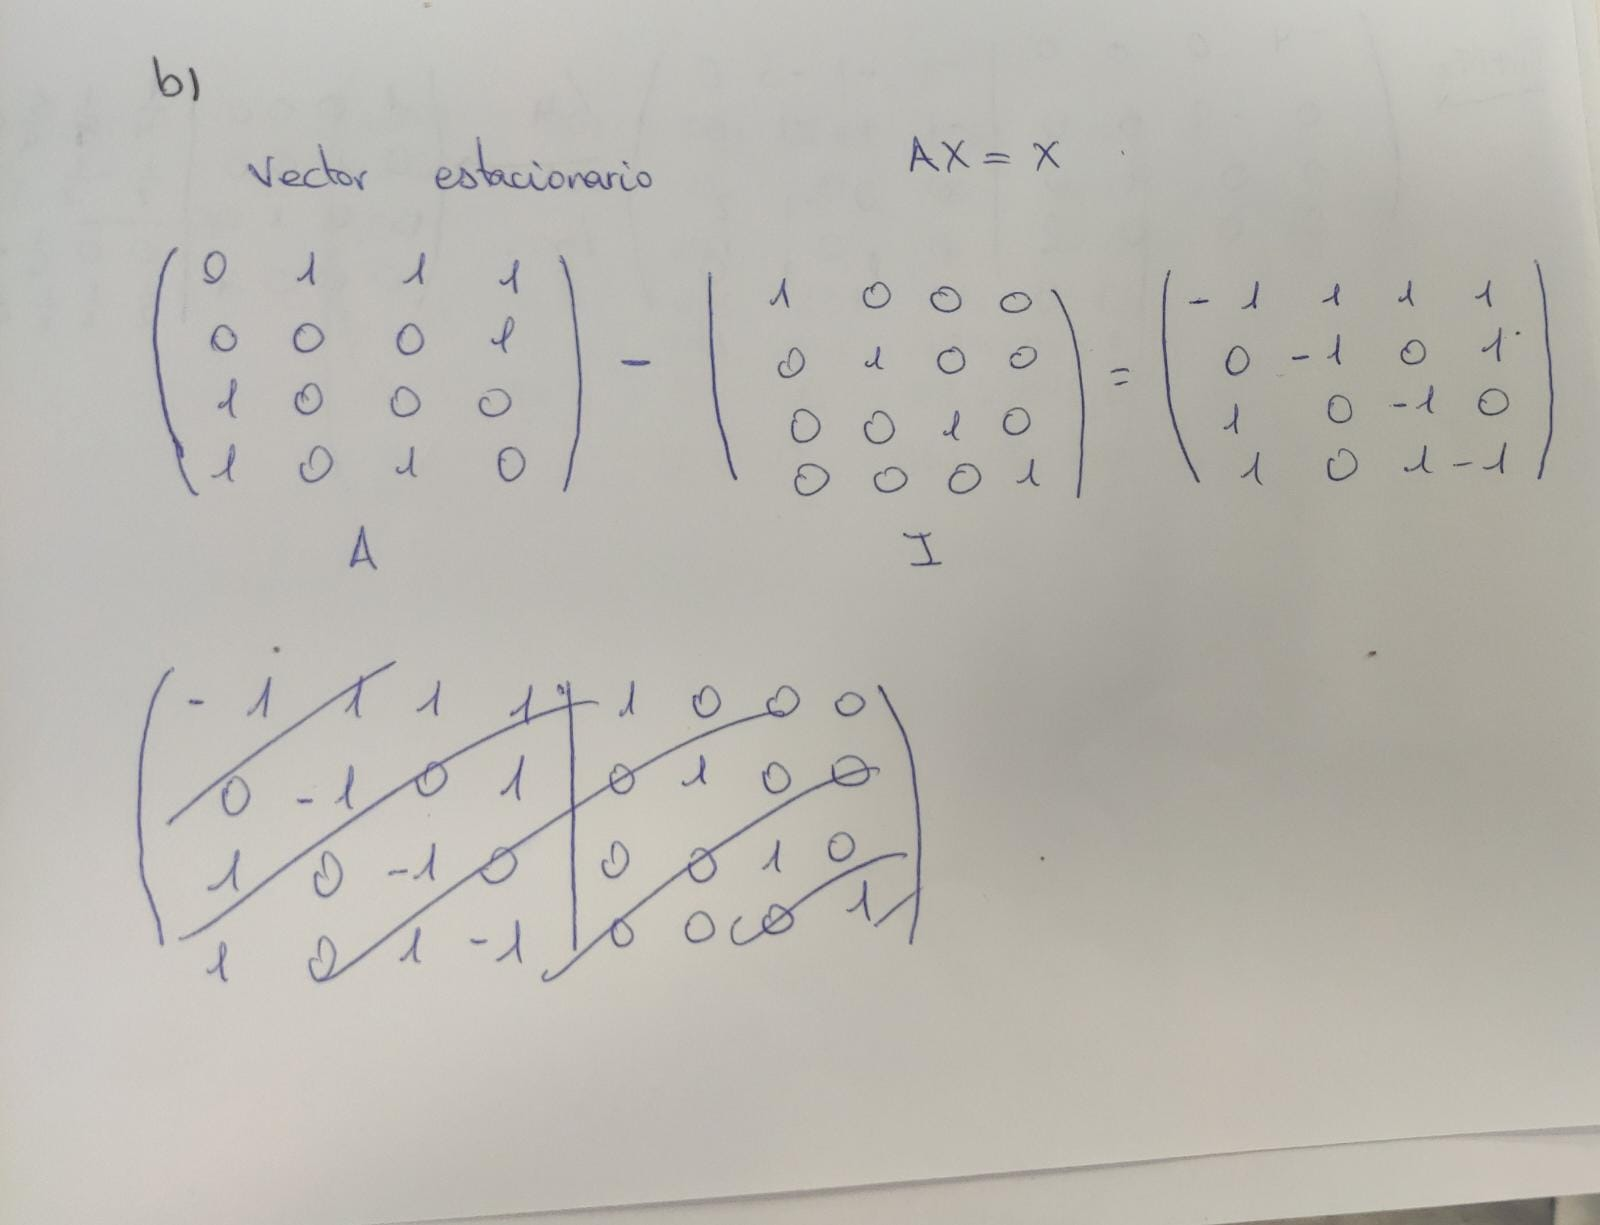 b)
Vector estacionario AX = X
0 1 1 1
0 0 0 1
1 0 0 0
1 0 1 0
A
-
1 0 0 0
0 1 0 0
0 0 1 0
0 0 0 1
I
=
-1 1 1 1
0 -1 0 1
1 0 -1 0
1 0 1 -1
-1 1 1 1 | 1 0 0 0
0 -1 0 1 | 0 1 0 0
1 0 -1 0 | 0 0 1 0
1 0 1 -1 | 0 0 0 1